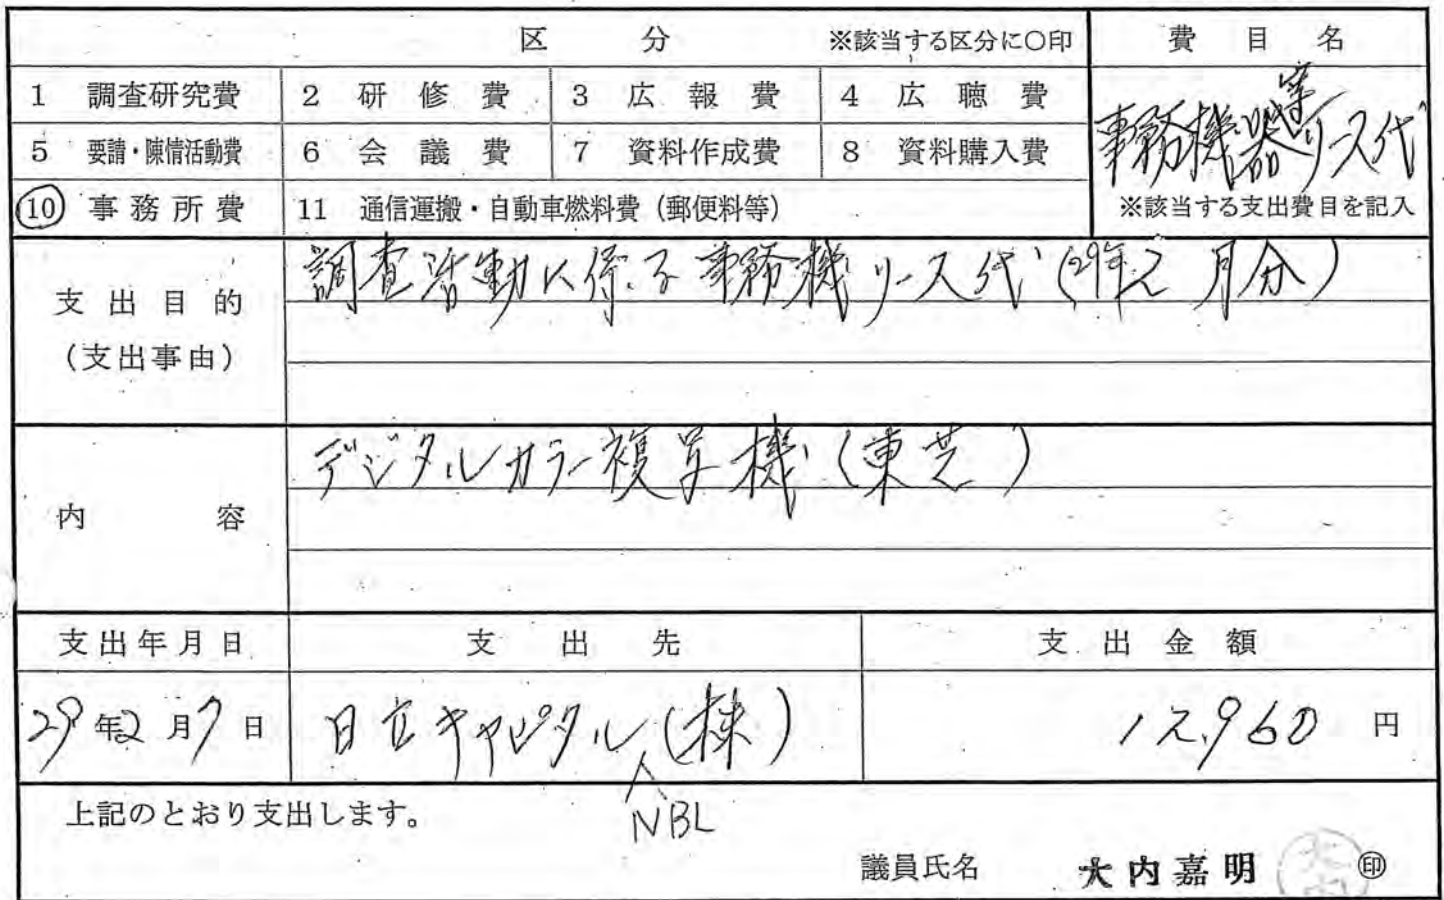 区 分 ※該当する区分に○印 費目名
1 調査研究費 2 研修費 3 広報費 4 広聴費
5 要請・陳情活動費 6 会議費 7 資料作成費 8 資料購入費
事務機器等リース代
⑩ 事務所費 11 通信運搬・自動車燃料費(郵便料等) ※該当する支出費目を記入
支出目的
(支出事由)
調査活動に係る事務機リース代(29年2月分)
内容
デジタルカラー複写機(東芝)
支出年月日 支出先 支出金額
29年2月7日 日立キャピタル(株) 12,960円
NBL
上記のとおり支出します。
議員氏名 大内嘉明 ㊞